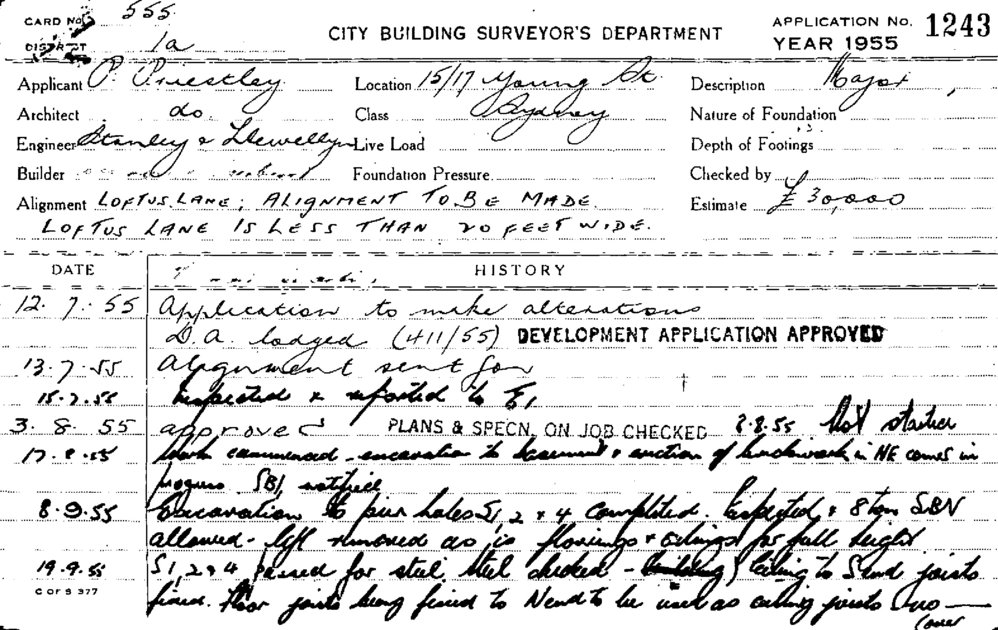 CARD No. 555
DISTRICT 1a
CITY BUILDING SURVEYOR'S DEPARTMENT
APPLICATION No. 1243
YEAR 1955
Applicant P. Priestley Location 15/17 Young St Description Major
Architect do. Class Sydney Nature of Foundation
Engineer Stanley & Llewellyn Live Load Depth of Footings
Builder Foundation Pressure Checked by
Alignment LOFTUS LANE; ALIGNMENT TO BE MADE. Estimate £30,000
LOFTUS LANE IS LESS THAN 20 FEET WIDE.
DATE HISTORY
12. 7. 55 Application to make alterations
D.A. lodged (411/55) DEVELOPMENT APPLICATION APPROVED
13.7.55 Alignment sent for
15.7.55 Inspected & reported to E1
3. 8. 55 approved PLANS & SPECN. ON JOB CHECKED 2.8.55 Not started
17.8.55 Work commenced - excavation to basement & erection of brickwork in NE corner in
progress SBI notified
8.9.55 Excavation to pier holes S1, 2 & 4 completed. Inspected & 8 ton
allowed - left removed as is floorings & ceilings for full height
19.9.55 S1, 2 & 4 passed for steel, steel checked - ceiling to S end joists
fixed. Floor joists being fixed to N end to be used as ceiling joists - no —
(over
C OF S 377